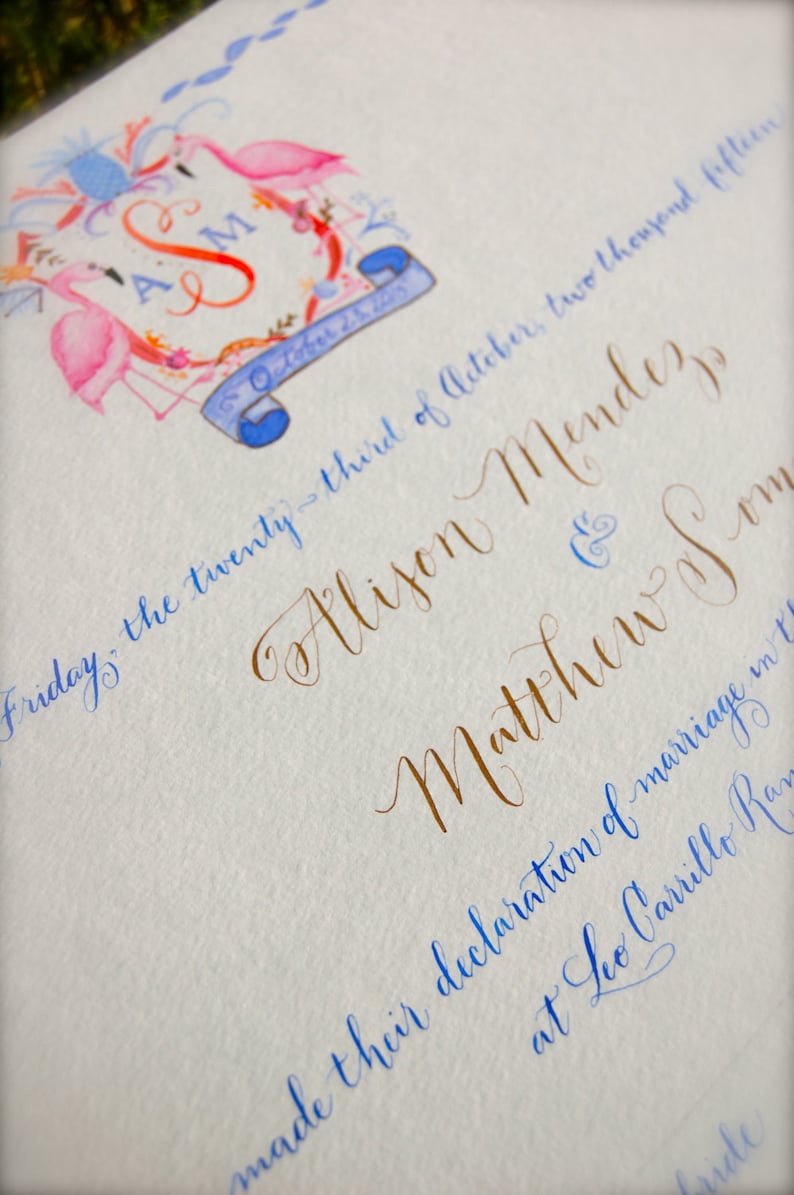 A S M
October 23, 2015
Friday, the twenty-third of October, two thousand fifteen
Alison Mendez
&
Matthew Som
made their declaration of marriage in th
at Leo Carrillo Ran
bride